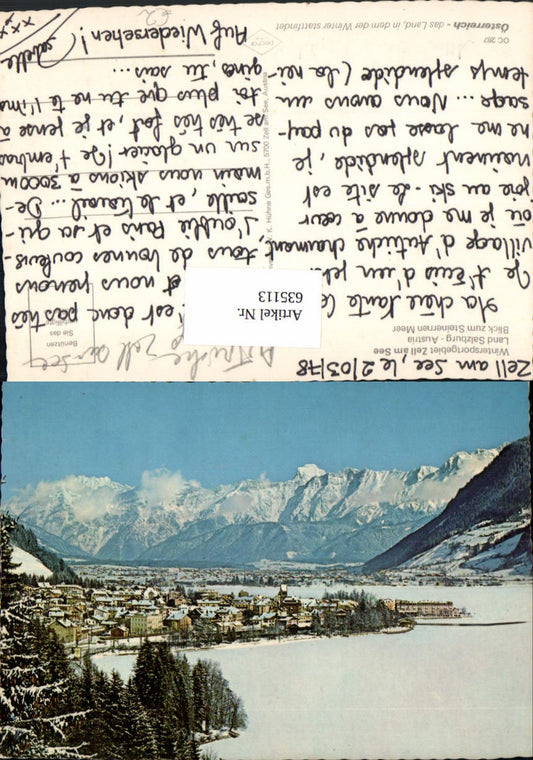 Zell am See, le 2/03/78
Wintersportgebiet Zell am See
Land Salzburg - Austria
Blick zum Steinernen Meer
Ma chère Tante
Je t'écris d'un
village d'Autriche charmant,
où je me donne à cœur
joie au ski. Le site est
vraiment splendide, je
ne me lasse pas du pay-
sage... Nous avons un
temps splendide (la nei-
OC 287
Österreich - das Land, in dem der Winter stattfindet
K. Hühne Ges.m.b.H., 5700 Zell am See, Austria
Benützen
Sie das
Autriche Zell am See
Artikel Nr.
635113
est donc pas très
et nous prenons
tous de bonnes couleurs.
J'oublie Paris et sa gri-
saille, et le travail... De-
main nous skions à 3000m
sur un glacier! Je t'embras-
se très très fort, et je pense à
toi plus que tu ne te l'ima-
gines, tu sais...
Auf Wiedersehen!
xxx